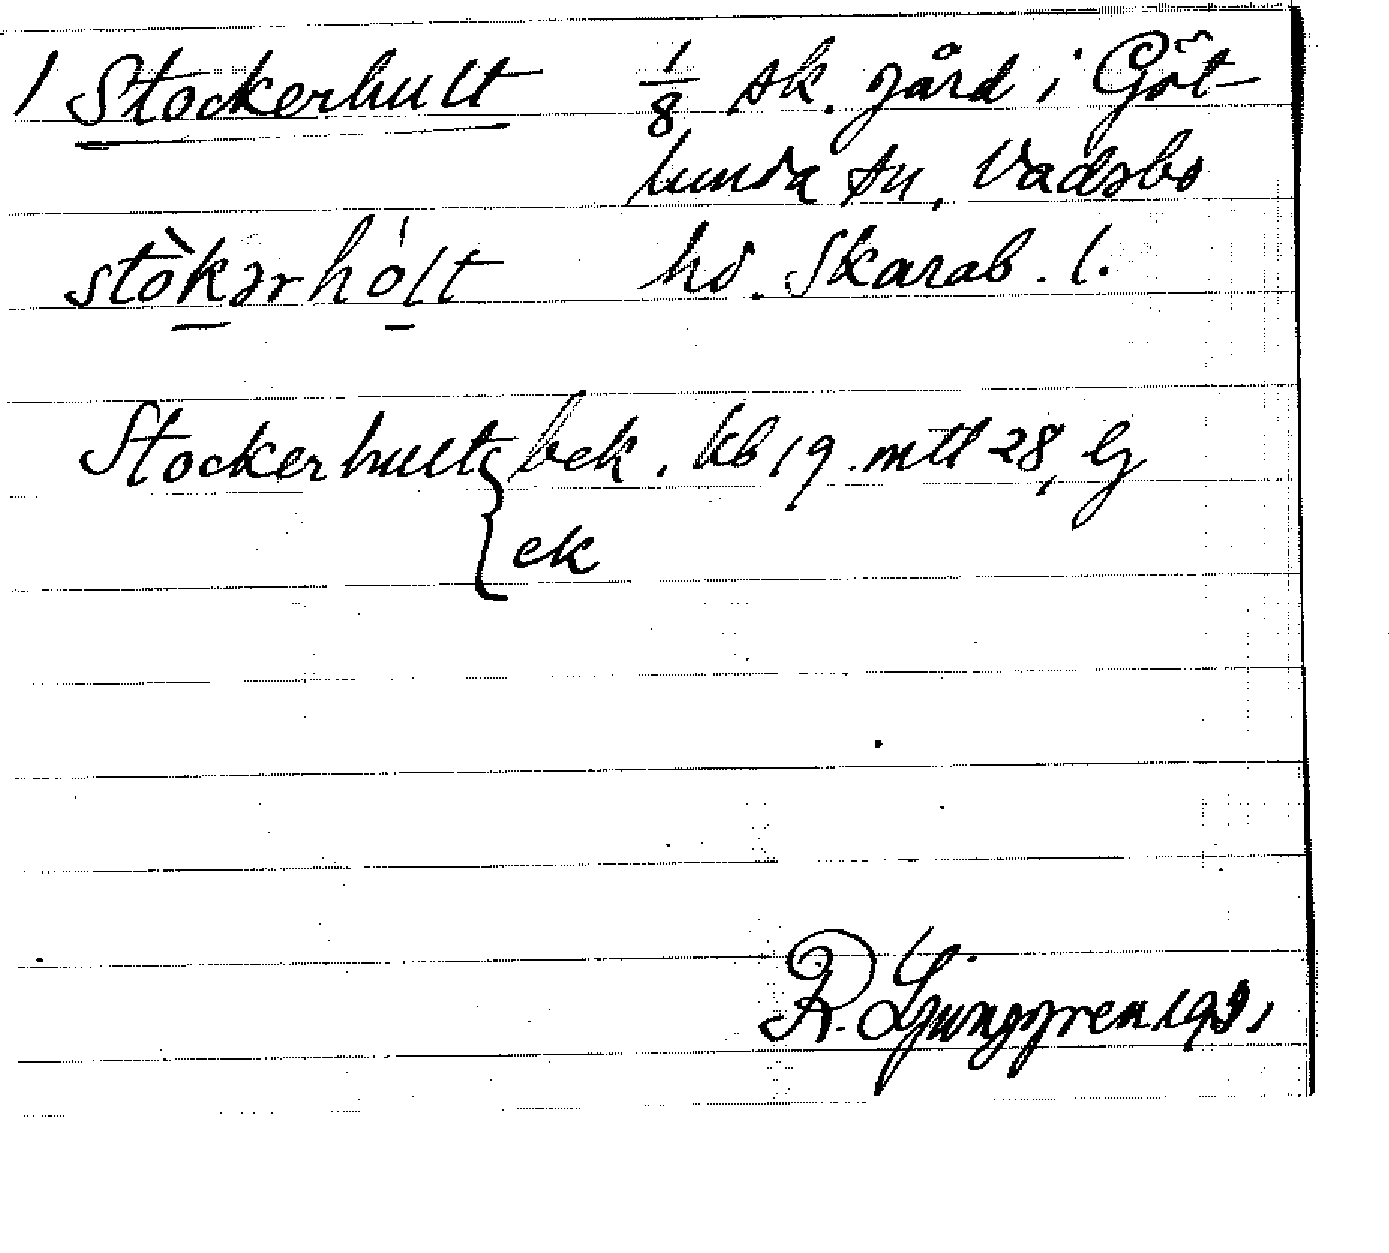 1 Stockerhult 1/8 sk. gård i Göt-
lunda sn, Vadsbo
stòkərhólt hd. Skarab. l.
Stockerhult { bek. kb 19. mtl 28,
ek
R. Ljunggren